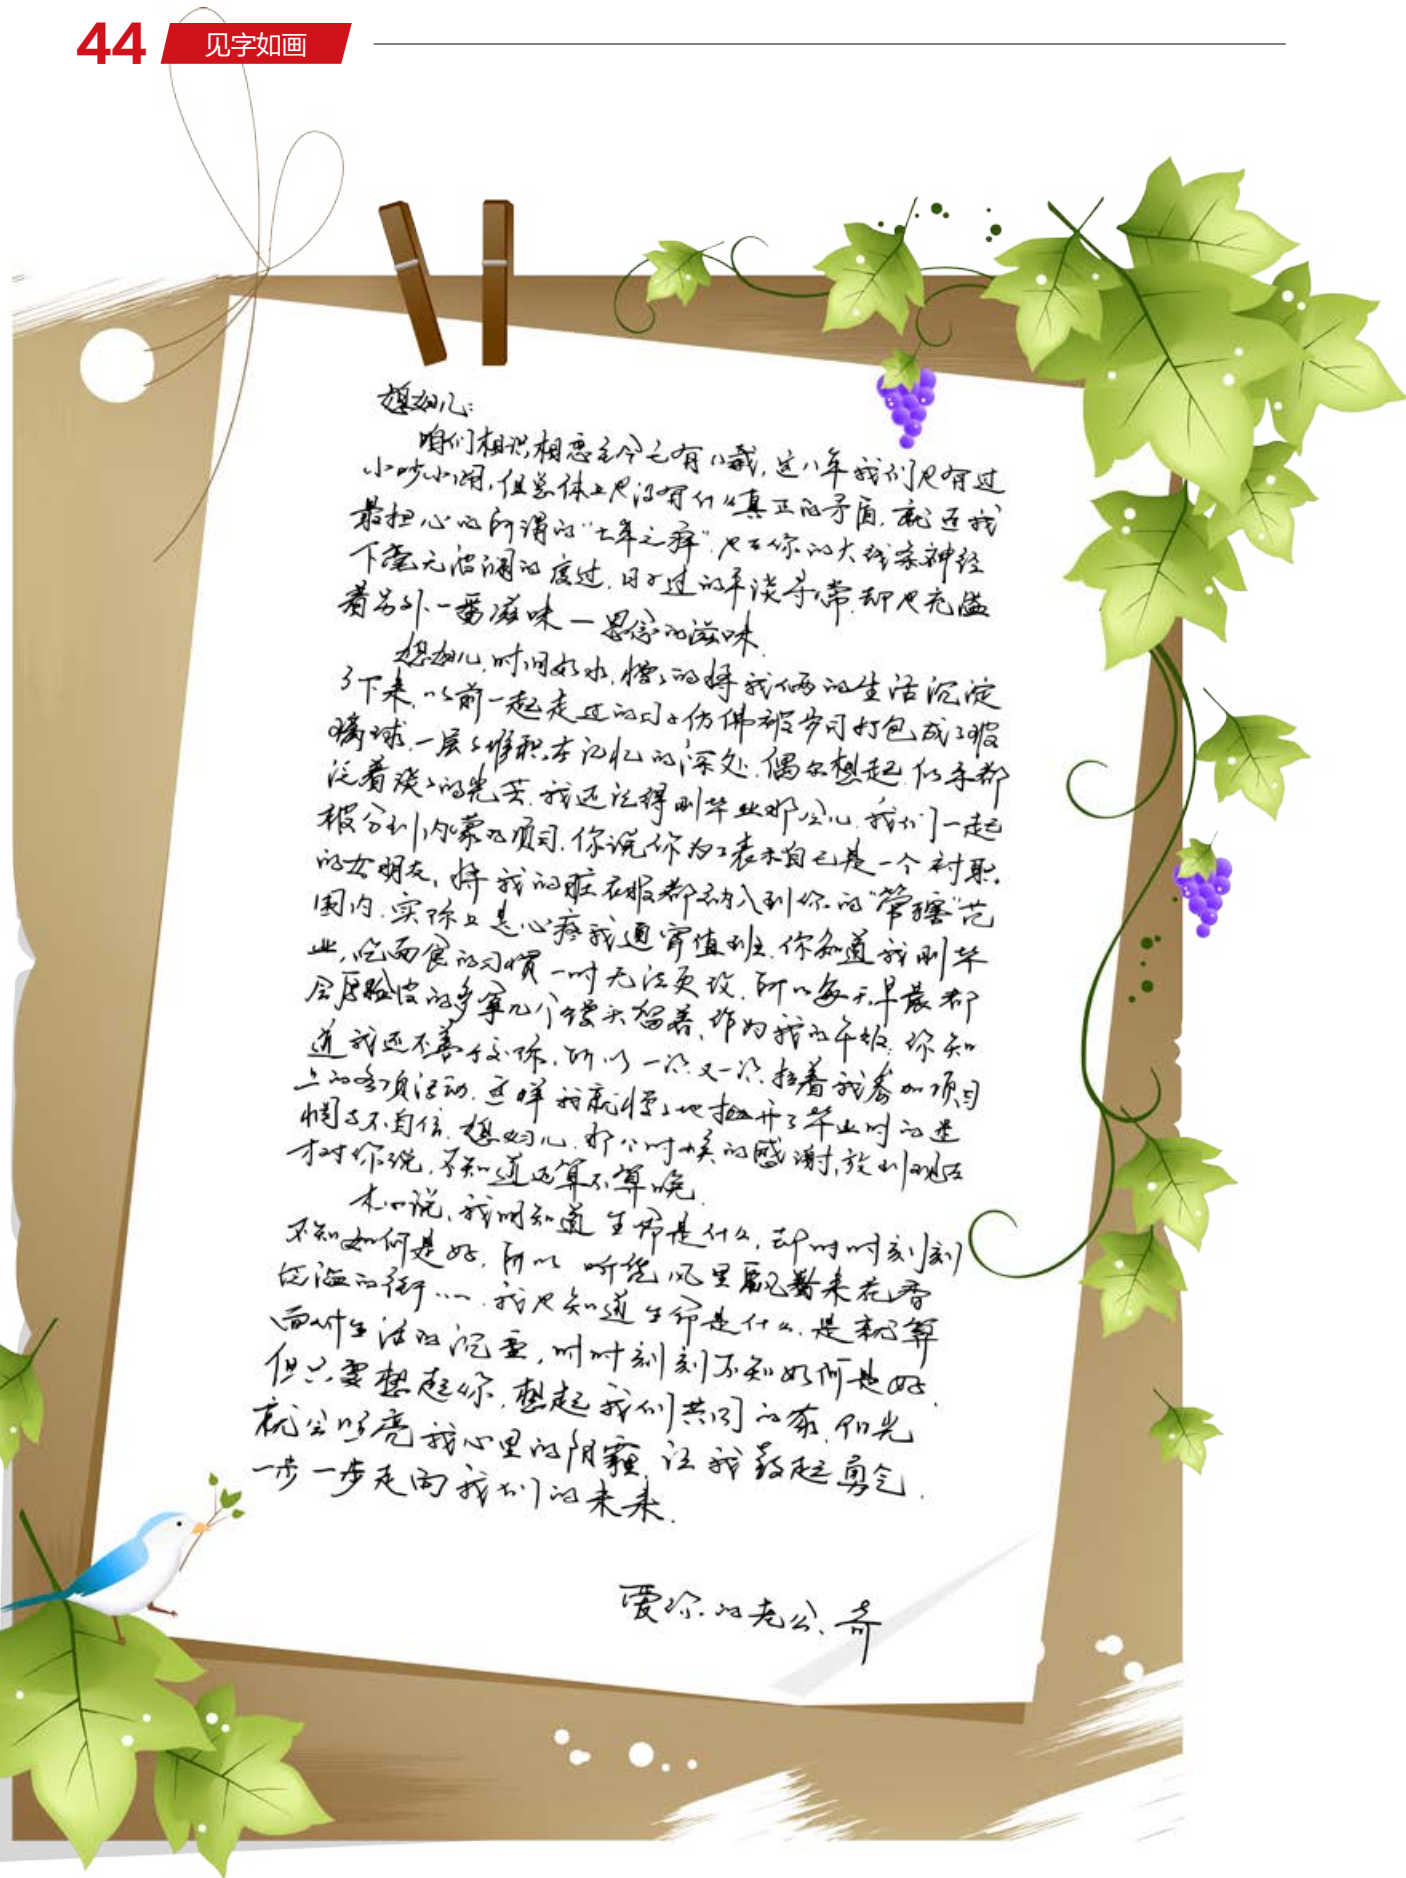 44 见字如画
媳妇儿:
咱们相识相恋至今已有八载,这八年我们只有过
小吵小闹,但总体上只没有什么真正的矛盾,就连我
最担心的所谓的“七年之痒”,只在你的大线条神经
下毫无波澜的度过,日子过的平淡寻常,却只充溢
着另外一番滋味一思念的滋味.
媳妇儿,时间如水,慢慢的将我俩的生活沉淀
了下来,以前一起走过的日子仿佛被岁月打包成了玻
璃球,一层层堆积在记忆的深处,偶尔想起,似乎都
泛着淡淡的光芒.我还记得刚毕业那会儿,我们一起
被分到内蒙的项目,你说你为了表示自己是一个衬职
的女朋友,将我的脏衣服都纳入到你的“管辖”范
围内.实际上是心疼我通宵值班.你知道我刚毕
业,吃面食的习惯一时无法更改,所以每天早晨都
会厚脸皮的多拿几个馒头留着,作为我的午饭;你知
道我还不善于交际,所以一次又一次拉着我参加项目
上的各项活动.这样我就慢慢地抛开了毕业时的迷
惘与不自信.媳妇儿,那个时候的感谢,放到现在
才对你说,不知道还算不算晚.
木心说,我明知道生命是什么,却时时刻刻
不知如何是好.所以听凭风里飘来花香
泛滥的街....我只知道生命是什么.是就算
面对生活的沉重,时时刻刻不知如何是好,
但只要想起你,想起我们共同的家,阳光
就会照亮我心里的阴霾,让我鼓起勇气.
一步一步走向我们的未来.
爱你的老公、奇